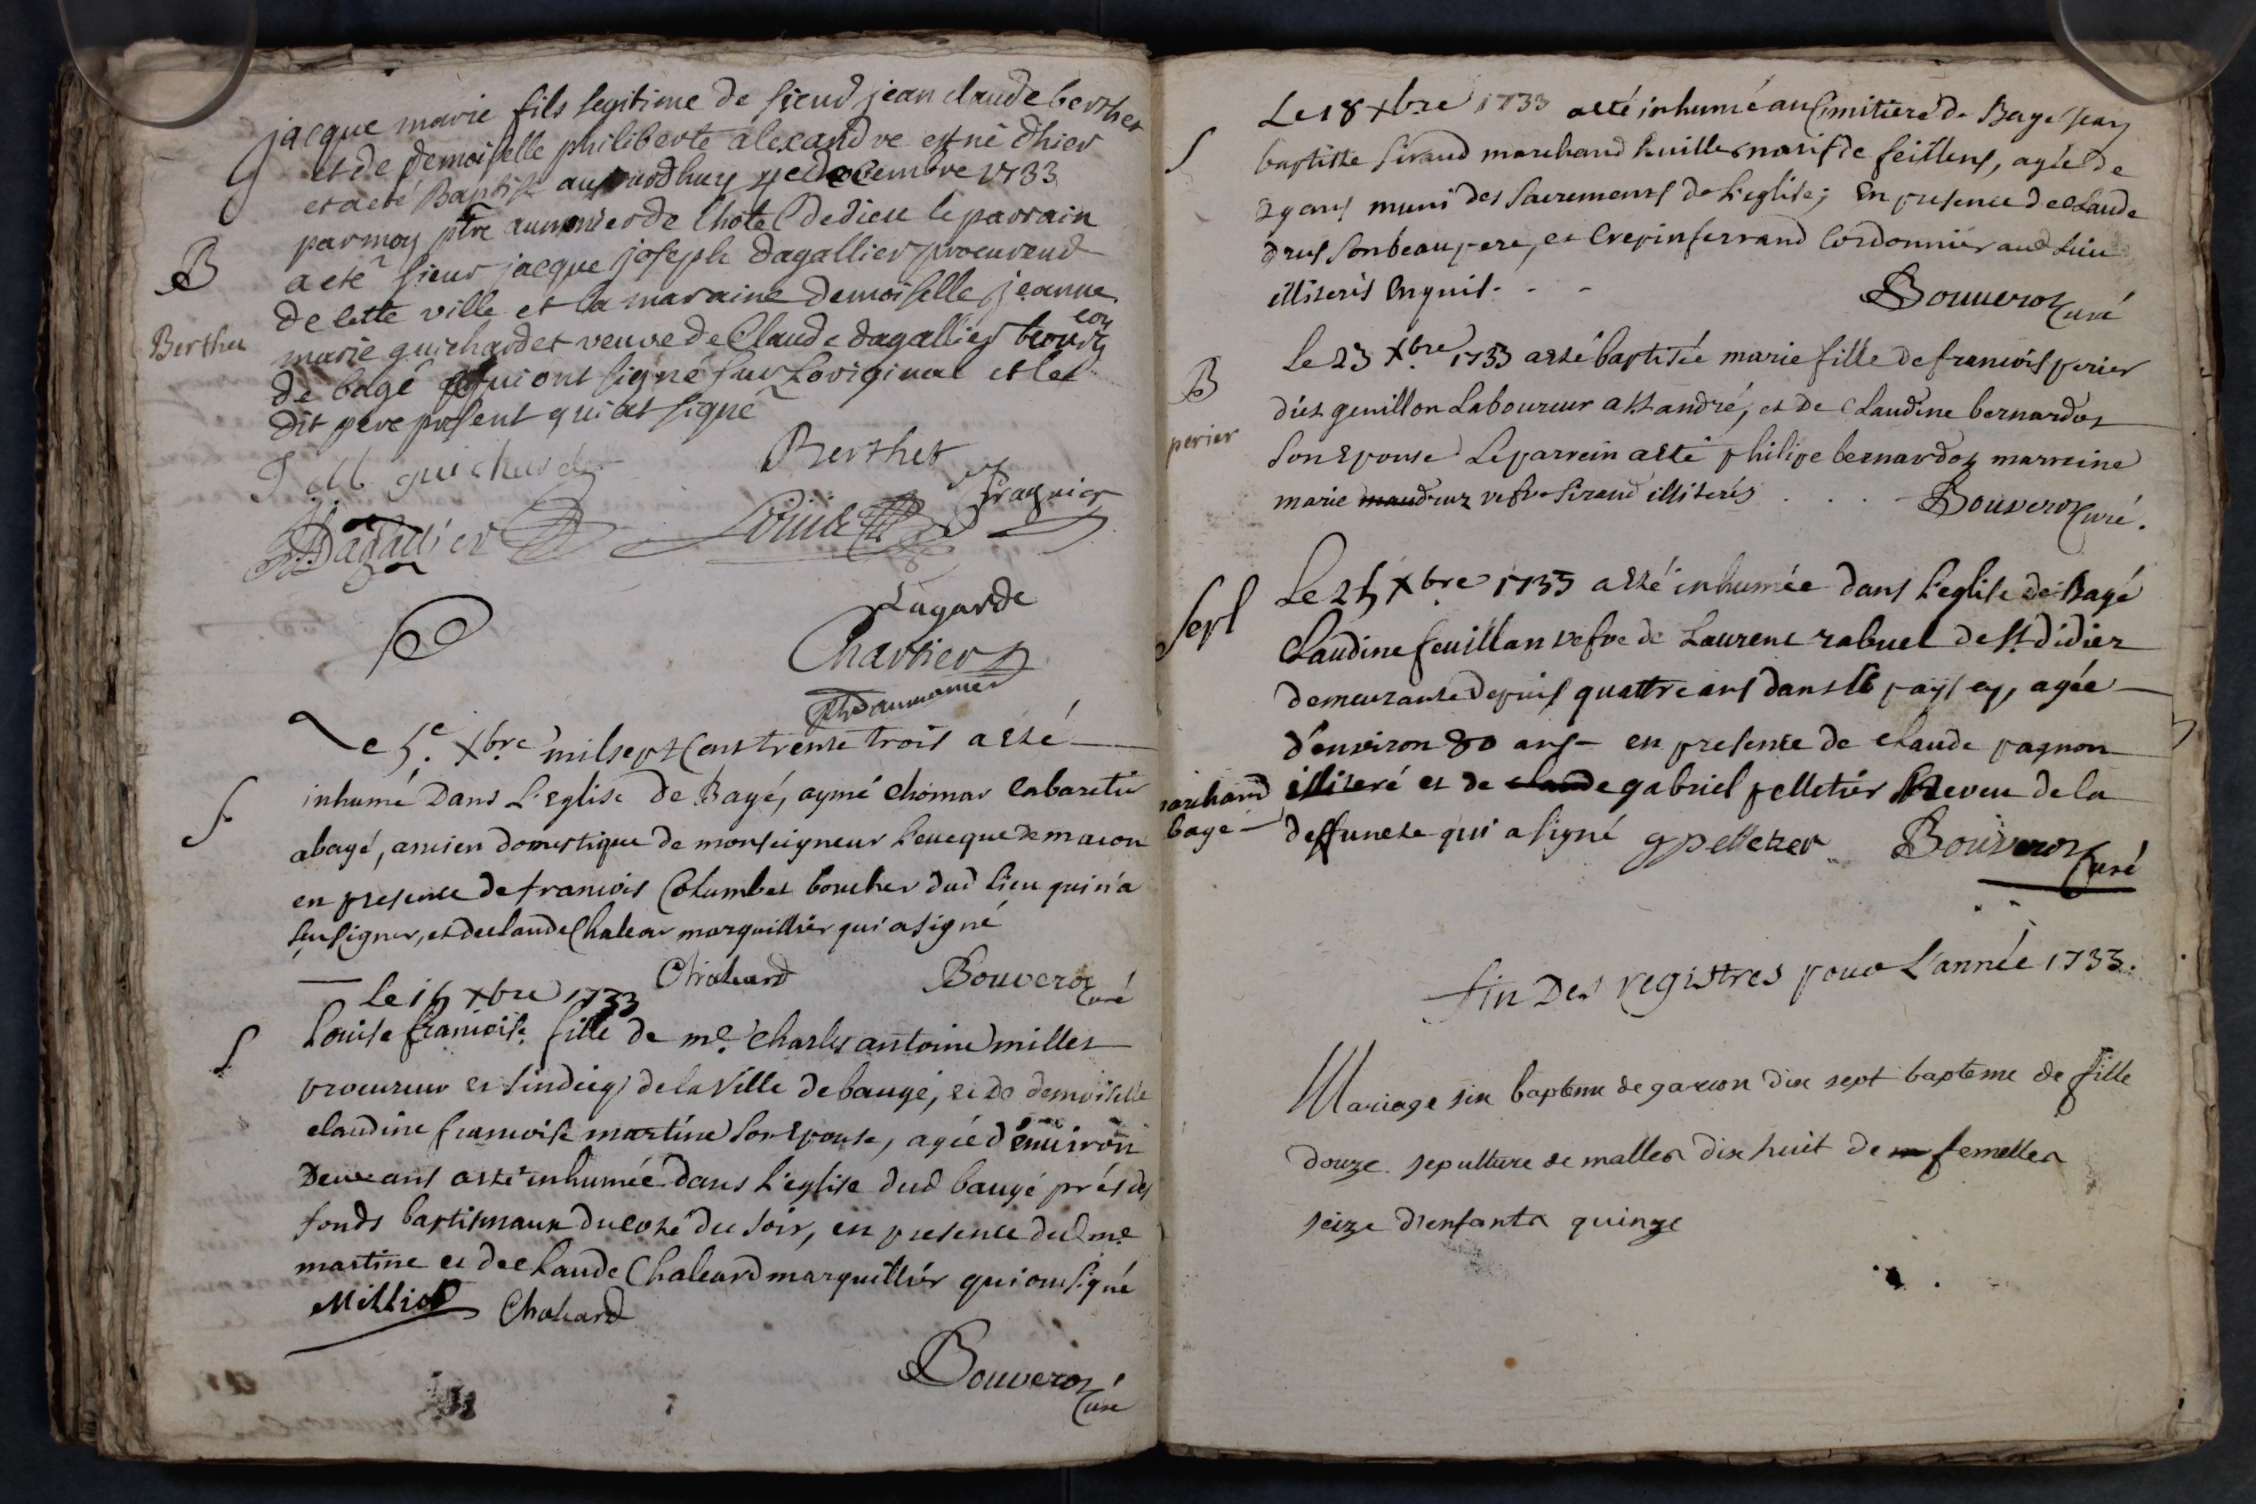 jacque marie fils legitime de sieur jean claude berthet
et de demoiselle philiberte alexandre est né d'hier
et a eté Baptisé aujourdhuy decembre 1733
par moy ptre aumonier de lhotel dedieu le parrain
B
a eté sieur jacque joseph dagallier procureur
de cette ville et la maraine demoiselle jeanne
Berthet
marie guichardet veuve de Claude dagallier
de bagé qui ont signé sur loriginal et le
dit pere present qui at signé
guichardet Berthet
Dagallier
Lagarde
Chartier
Le 5e xbre mil sept Cent trente trois a esté
S
inhumé Dans L'Eglise de Bagé, aymé chomar Cabaretier
a bagé, ancien domestique de monseigneur leveque de macon
en presence de francois Columbet boucher dud lieu qui n'a
sçu signer, et de claude Chalear marguillier qui a signé
Chaleard Bouverot Curé
le 15 xbre 1733
S
Louise francoise fille de me. Charles antoine millet
procureur et sindicq de la Ville de baugé, et de demoiselle
claudine francoise martine son Epouse, agée d'environ
Deux ans a esté inhumée dans l'eglise dud baugé prés des
fonds baptismaux du costé du soir, en presence dud me
martine et de claude Chaleard marguillier qui ont signé
Milliet Chaleard
Bouverot
Curé
Le 18 xbre 1733 a eté inhumé au Cimitiere de Bage Jean
S
baptiste siraud marchand huillier natif de feillens, agé de
29 ans muni des sacrements de l'eglise; En presence de claude
drus son beaupere, et Crepin ferrand Cordonnier aud Lieu
illiterés Enquis. - - Bouverot Curé
B
le 23 xbre 1733 a esté baptisée marie fille de francois perier
perier
dit genillon Laboureur a st andré, et De Claudine bernardot
son Epouse Le parrein a esté philipe bernardot marreine
marie vefve siraud illiterés . . . Bouverot Curé.
Sepl
Le 25 xbre 1733 a esté inhumée dans l'eglise de Bagé
Claudine feuillan vefve de Laurent rabuel de st. didier
demeurante depuis quattre ans dans le pays cy, agée
d'environ 80 ans - en presence de claude pagnon
marchand illiteré et de claude gabriel pelletier neveu de la
bage - deffuncte qui a signé gpelletier Bouverot Curé
fin Des registres pour L'année 1733.
Mariage six bapteme de garcon dix sept bapteme de fille
douze sepulture de malles dix huit de femelles
seize d'enfants quinze